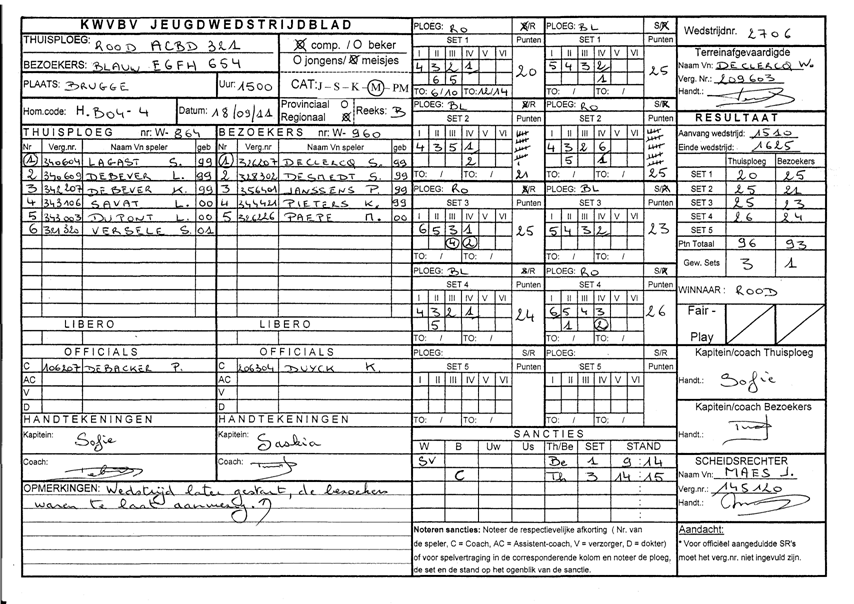 KWVBV JEUGDWEDSTRIJDBLAD
THUISPLOEG: ROOD ACBD 321
comp. / O beker
BEZOEKERS: BLAUW EGFH 654
O jongens/ meisjes
PLAATS: BRUGGE
Uur: 1500
CAT: J - S - K - M - PM
Hom.code: H.B04-4
Datum: 18/09/11
Provinciaal O
Regionaal
Reeks: B
THUISPLOEG nr: W- 864
BEZOEKERS nr: W- 960
Nr Verg.nr. Naam Vn speler geb
Nr Verg.nr. Naam Vn speler geb
1 340604 LAGAST S. 99
1 326207 DECLERCQ S. 99
2 340609 DEBEVER L. 99
2 328302 DESMEDT S. 99
3 342207 DEBEVER K. 99
3 356401 JANSSENS P. 99
4 343106 SAVAT L. 00
4 344421 PIETERS K. 99
5 343003 DUPONT L. 00
5 326226 PAEPE M. 00
6 321320 VERSELE S. 01
LIBERO
LIBERO
OFFICIALS
OFFICIALS
C 106207 DEBACKER P.
C 206304 DUYCK K.
AC
AC
V
V
D
D
HANDTEKENINGEN
HANDTEKENINGEN
Kapitein: Sofie
Kapitein: Saskia
Coach:
Coach:
OPMERKINGEN: Wedstrijd later gestart, de bezoekers
waren te laat aanwezig.
PLOEG: RO S/R
PLOEG: BL S/R
SET 1 Punten
SET 1 Punten
I II III IV V VI
I II III IV V VI
4 3 2 1
5 4 3 2
6 5 2
1
20
25
TO: 6/10 TO: 12/14
TO: / TO: /
PLOEG: BL S/R
PLOEG: RO S/R
SET 2 Punten
SET 2 Punten
I II III IV V VI
I II III IV V VI
4 3 5 1
4 3 2 6
2
5 1
21
25
TO: / TO: /
TO: / TO: /
PLOEG: RO S/R
PLOEG: BL S/R
SET 3 Punten
SET 3 Punten
I II III IV V VI
I II III IV V VI
6 5 3 1
5 4 3 2
4 2
1
25
23
TO: / TO: /
TO: / TO: /
PLOEG: BL S/R
PLOEG: RO S/R
SET 4 Punten
SET 4 Punten
I II III IV V VI
I II III IV V VI
4 3 2 1
6 5 4 3
5
1 2
24
26
TO: / TO: /
TO: / TO: /
PLOEG: S/R
PLOEG: S/R
SET 5 Punten
SET 5 Punten
I II III IV V VI
I II III IV V VI
TO: / TO: /
TO: / TO: /
SANCTIES
W B Uw Us Th/Be SET STAND
SV Be 1 9 : 14
C Th 3 14 : 15
Noteren sancties: Noteer de respectievelijke afkorting ( Nr. van
de speler, C = Coach, AC = Assistent-coach, V = verzorger, D = dokter)
of voor spelvertraging in de corresponderende kolom en noteer de ploeg,
de set en de stand op het ogenblik van de sanctie.
Wedstrijdnr. 2706
Terreinafgevaardigde
Naam Vn: DECLERCQ W.
Verg. Nr.: 209603
Handt.:
RESULTAAT
Aanvang wedstrijd: 1510
Einde wedstrijd: 1625
Thuisploeg Bezoekers
SET 1 20 25
SET 2 25 21
SET 3 25 23
SET 4 26 24
SET 5
Ptn Totaal 96 93
Gew. Sets 3 1
WINNAAR : ROOD
Fair -
Play
Kapitein/coach Thuisploeg
Handt.: Sofie
Kapitein/coach Bezoekers
Handt.:
SCHEIDSRECHTER
Naam Vn: MAES J.
Verg.nr.: 145120
Handt.:
Aandacht:
* Voor officiëel aangeduidde SR's
moet het verg.nr. niet ingevuld zijn.